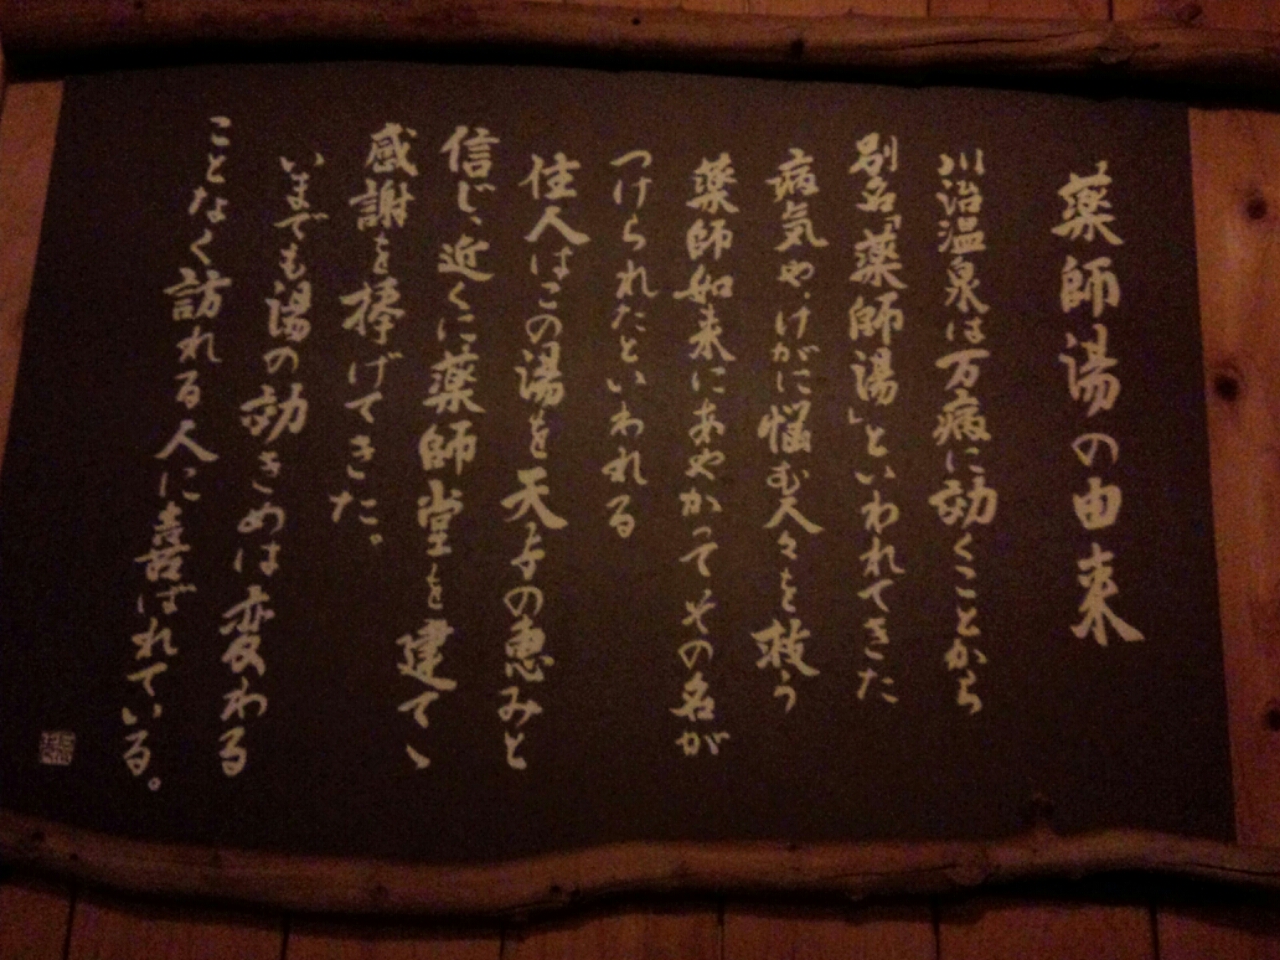 薬師湯の由来
川治温泉は万病に効くことから
別名「薬師湯」といわれてきた
病気や、けがに悩む人々を救う
薬師如来にあやかってその名が
つけられたといわれる
住人はこの湯を天よの恵みと
信じ、近くに薬師堂を建て、
感謝を捧げてきた。
いまでも湯の効きめは変わる
ことなく訪れる人に喜ばれている。